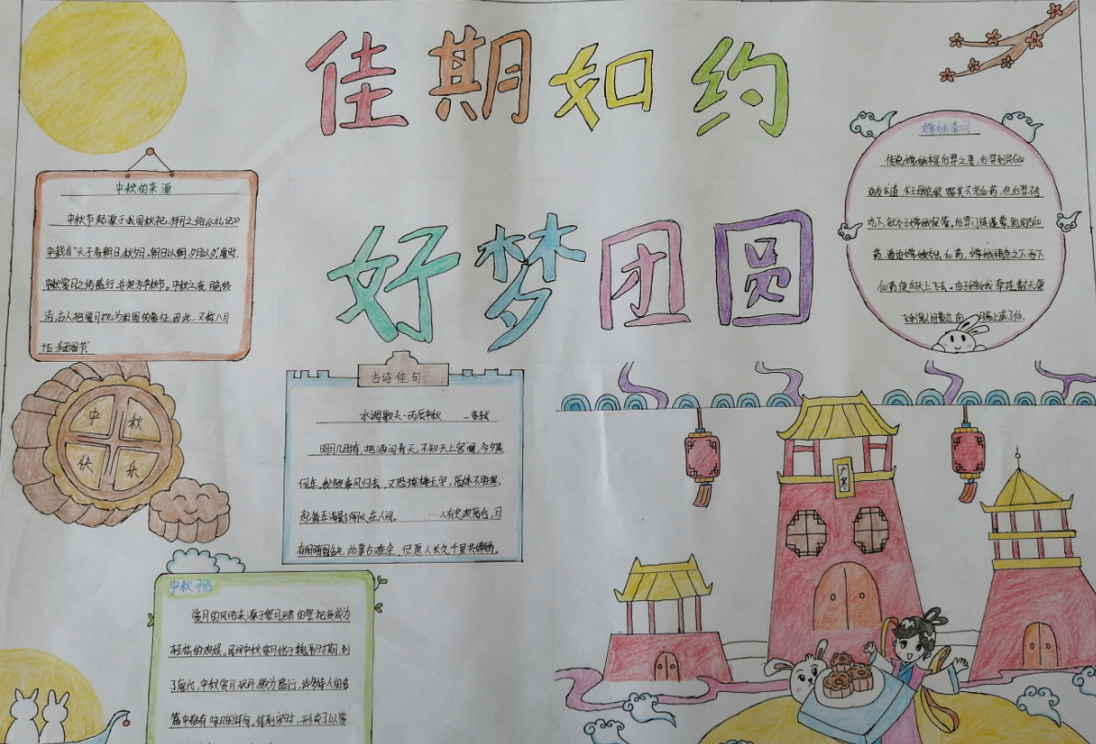 佳期如约
好梦团圆
中秋的来源
中秋节起源于我国秋祀、拜月之俗《礼记》
中载有"天子春朝日,秋夕月。朝日以朝,夕月以夕。"唐时,
中秋赏月之俗盛行,并定为中秋节。中秋之夜,月
,古人把圆月视为团圆的象征,因此,又称八月
十五为团圆节
中秋
快乐
古诗佳句
水调歌头·丙辰中秋 —苏轼
明月几时有,把酒问青天,不知天上宫阙,今夕是
何年,我欲乘风归去,又恐琼楼玉宇,高处不胜寒。
起舞弄清影,何似在人间。 …人有悲欢离合,月
有阴晴圆缺,此事古难全,但愿人长久,千里共婵娟。
中秋习俗
赏月的风俗来源于祭月,严肃的祭祀变成为
轻松的欢娱。民间中秋赏月约始于魏晋时期,到
了唐代,中秋赏月、玩月颇为盛行,许多诗人的名
篇中都有咏月的诗句。待到宋时,形成了以赏
嫦娥奔月
传说嫦娥本是后羿之妻,后羿射
西王母 不老仙药,但后羿不舍
吃下,就交于嫦娥保管。后羿门徒蓬蒙
药,逼迫嫦娥交出仙药,嫦娥情急之下吞下
仙药便向天上飞去。
月亮上成了仙。
广寒